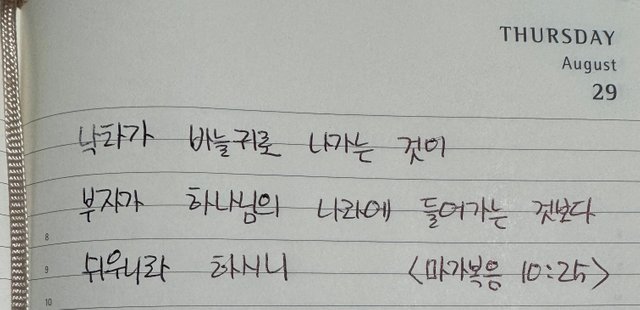 THURSDAY
August
29
낙타가 바늘귀로 나가는 것이
부자가 하나님의 나라에 들어가는 것보다
8
쉬우니라 하시니 <마가복음 10:25>
9
10